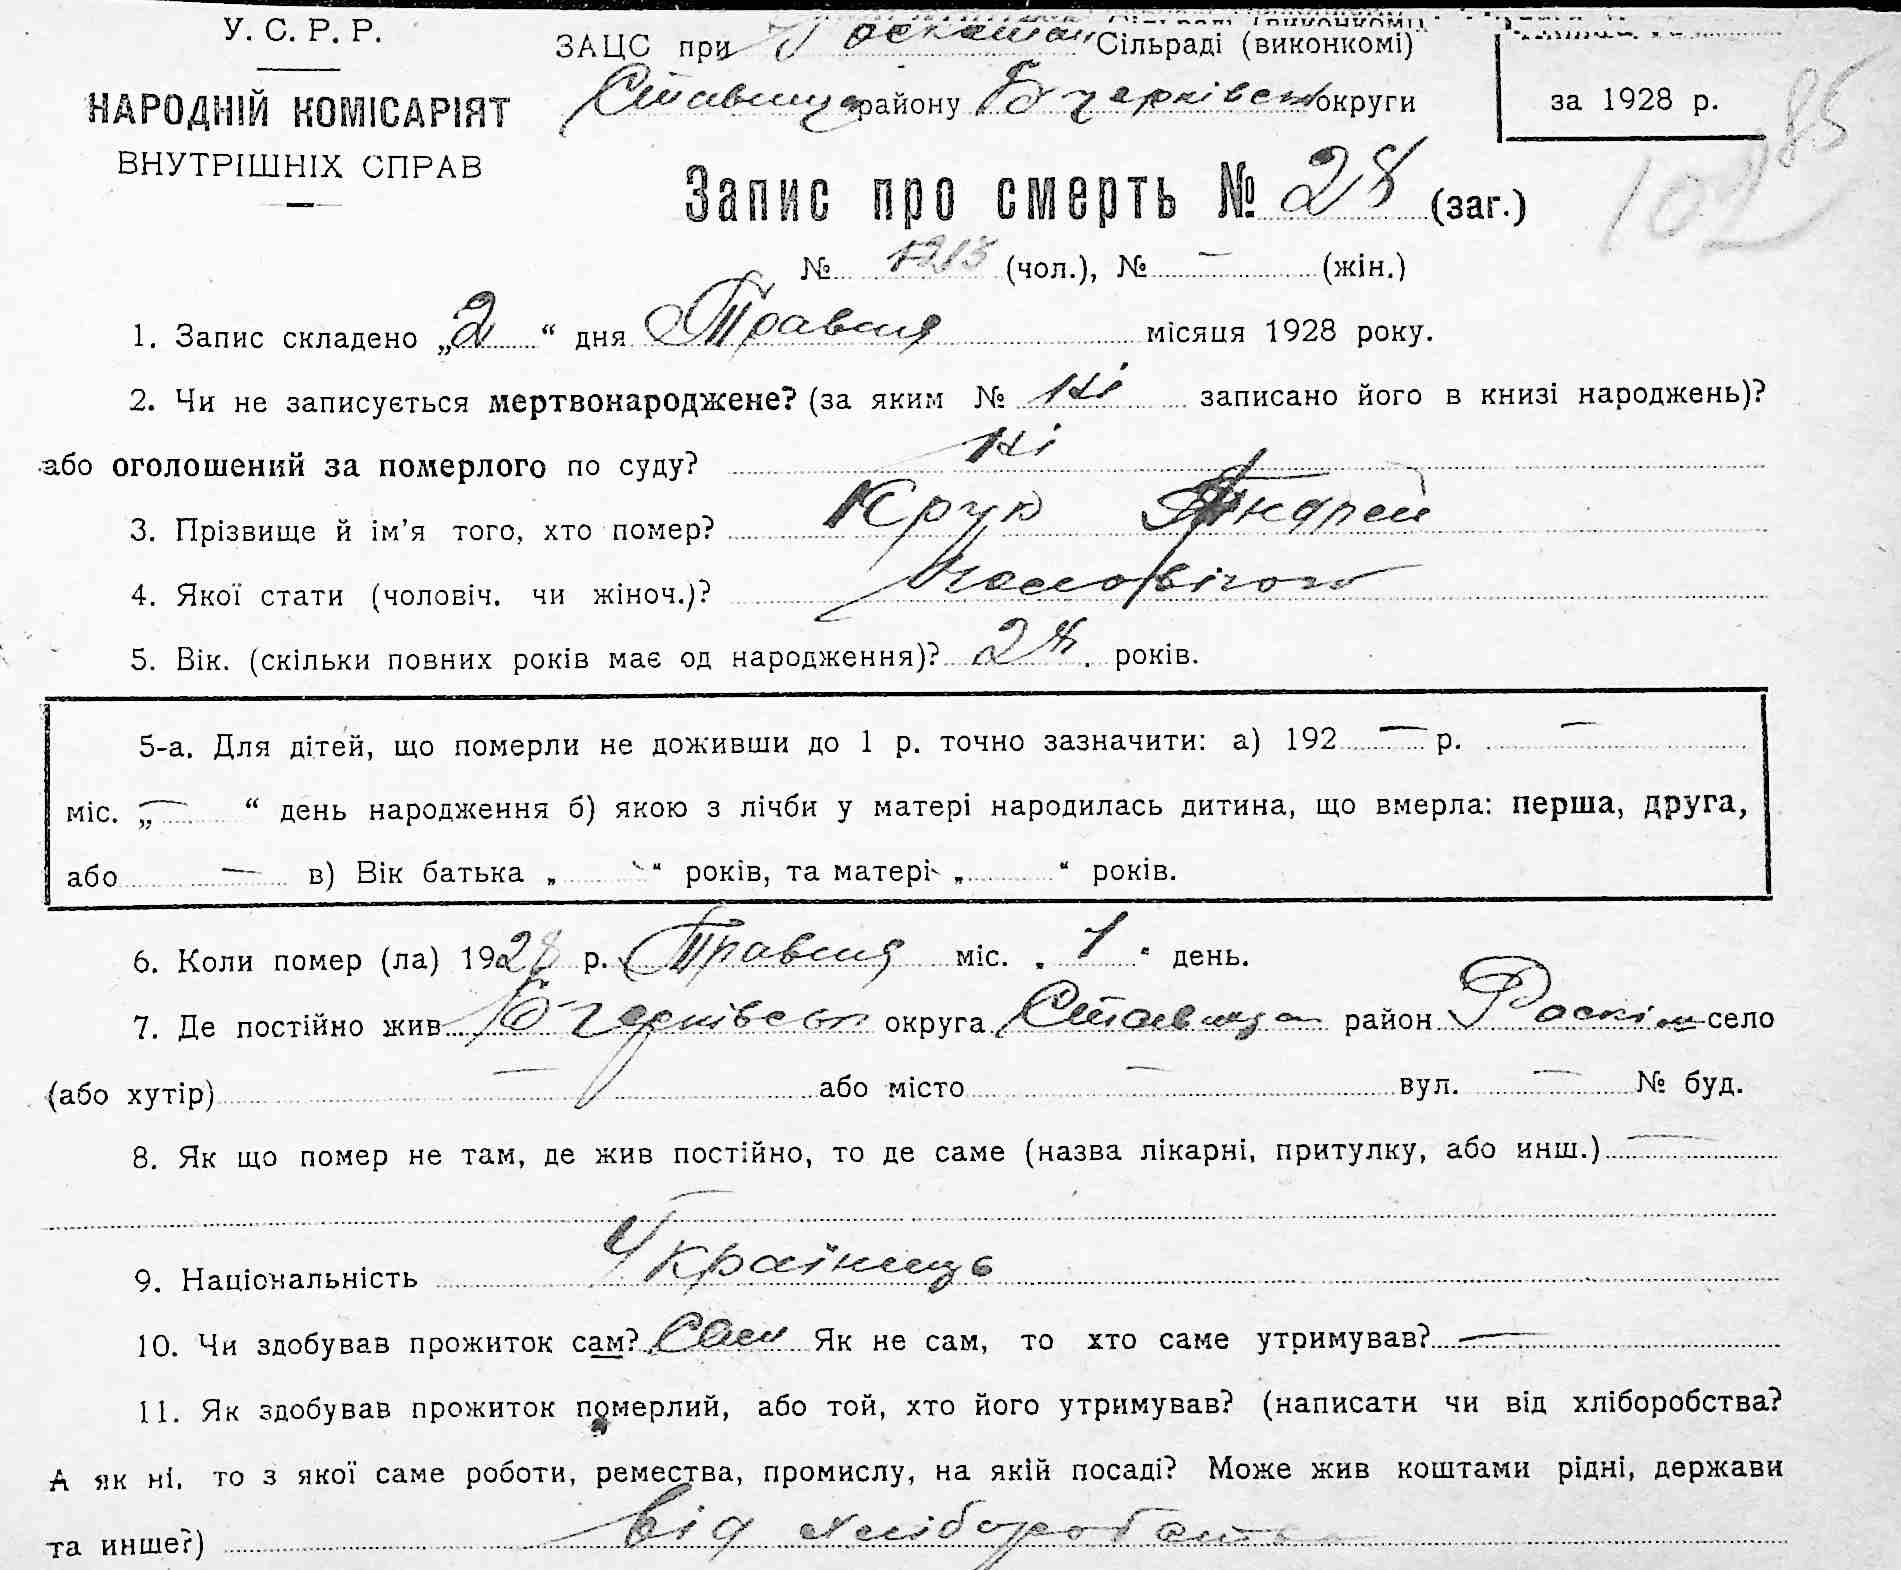 У. С. Р. Р.
НАРОДНІЙ КОМІСАРІЯТ
ВНУТРІШНІХ СПРАВ
ЗАЦС при Сільраді (виконкомі)
Ставищ району Б Церківськ округи
за 1928 р.
85
102
Запис про смерть № 28 (заг.)
№ (чол.), № — (жін.)
1. Запис складено „2“ дня Травня місяця 1928 року.
2. Чи не записується мертвонароджене? (за яким № Ні записано його в книзі народжень)?
або оголошений за померлого по суду? Ні
3. Прізвище й ім'я того, хто помер? Крук Андрей
4. Якої стати (чоловіч. чи жіноч.)? Чоловічого
5. Вік. (скільки повних років має од народження)? 28. років.
5-а. Для дітей, що померли не доживши до 1 р. точно зазначити: а) 192 — р. —
міс. „—“ день народження б) якою з лічби у матері народилась дитина, що вмерла: перша, друга,
або — в) Вік батька „ “ років, та матері „ “ років.
6. Коли помер (ла) 1928 р. Травня міс. „1“ день.
7. Де постійно жив Б-Церківськ округа Ставища район село
(або хутір) — або місто — вул. — № буд.
8. Як що помер не там, де жив постійно, то де саме (назва лікарні, притулку, або инш.) —
9. Національність Українець
10. Чи здобував прожиток сам? Сам Як не сам, то хто саме утримував? —
11. Як здобував прожиток померлий, або той, хто його утримував? (написати чи від хліборобства?
А як ні, то з якої саме роботи, ремества, промислу, на якій посаді? Може жив коштами рідні, держави
та инше?) Від хліборобства